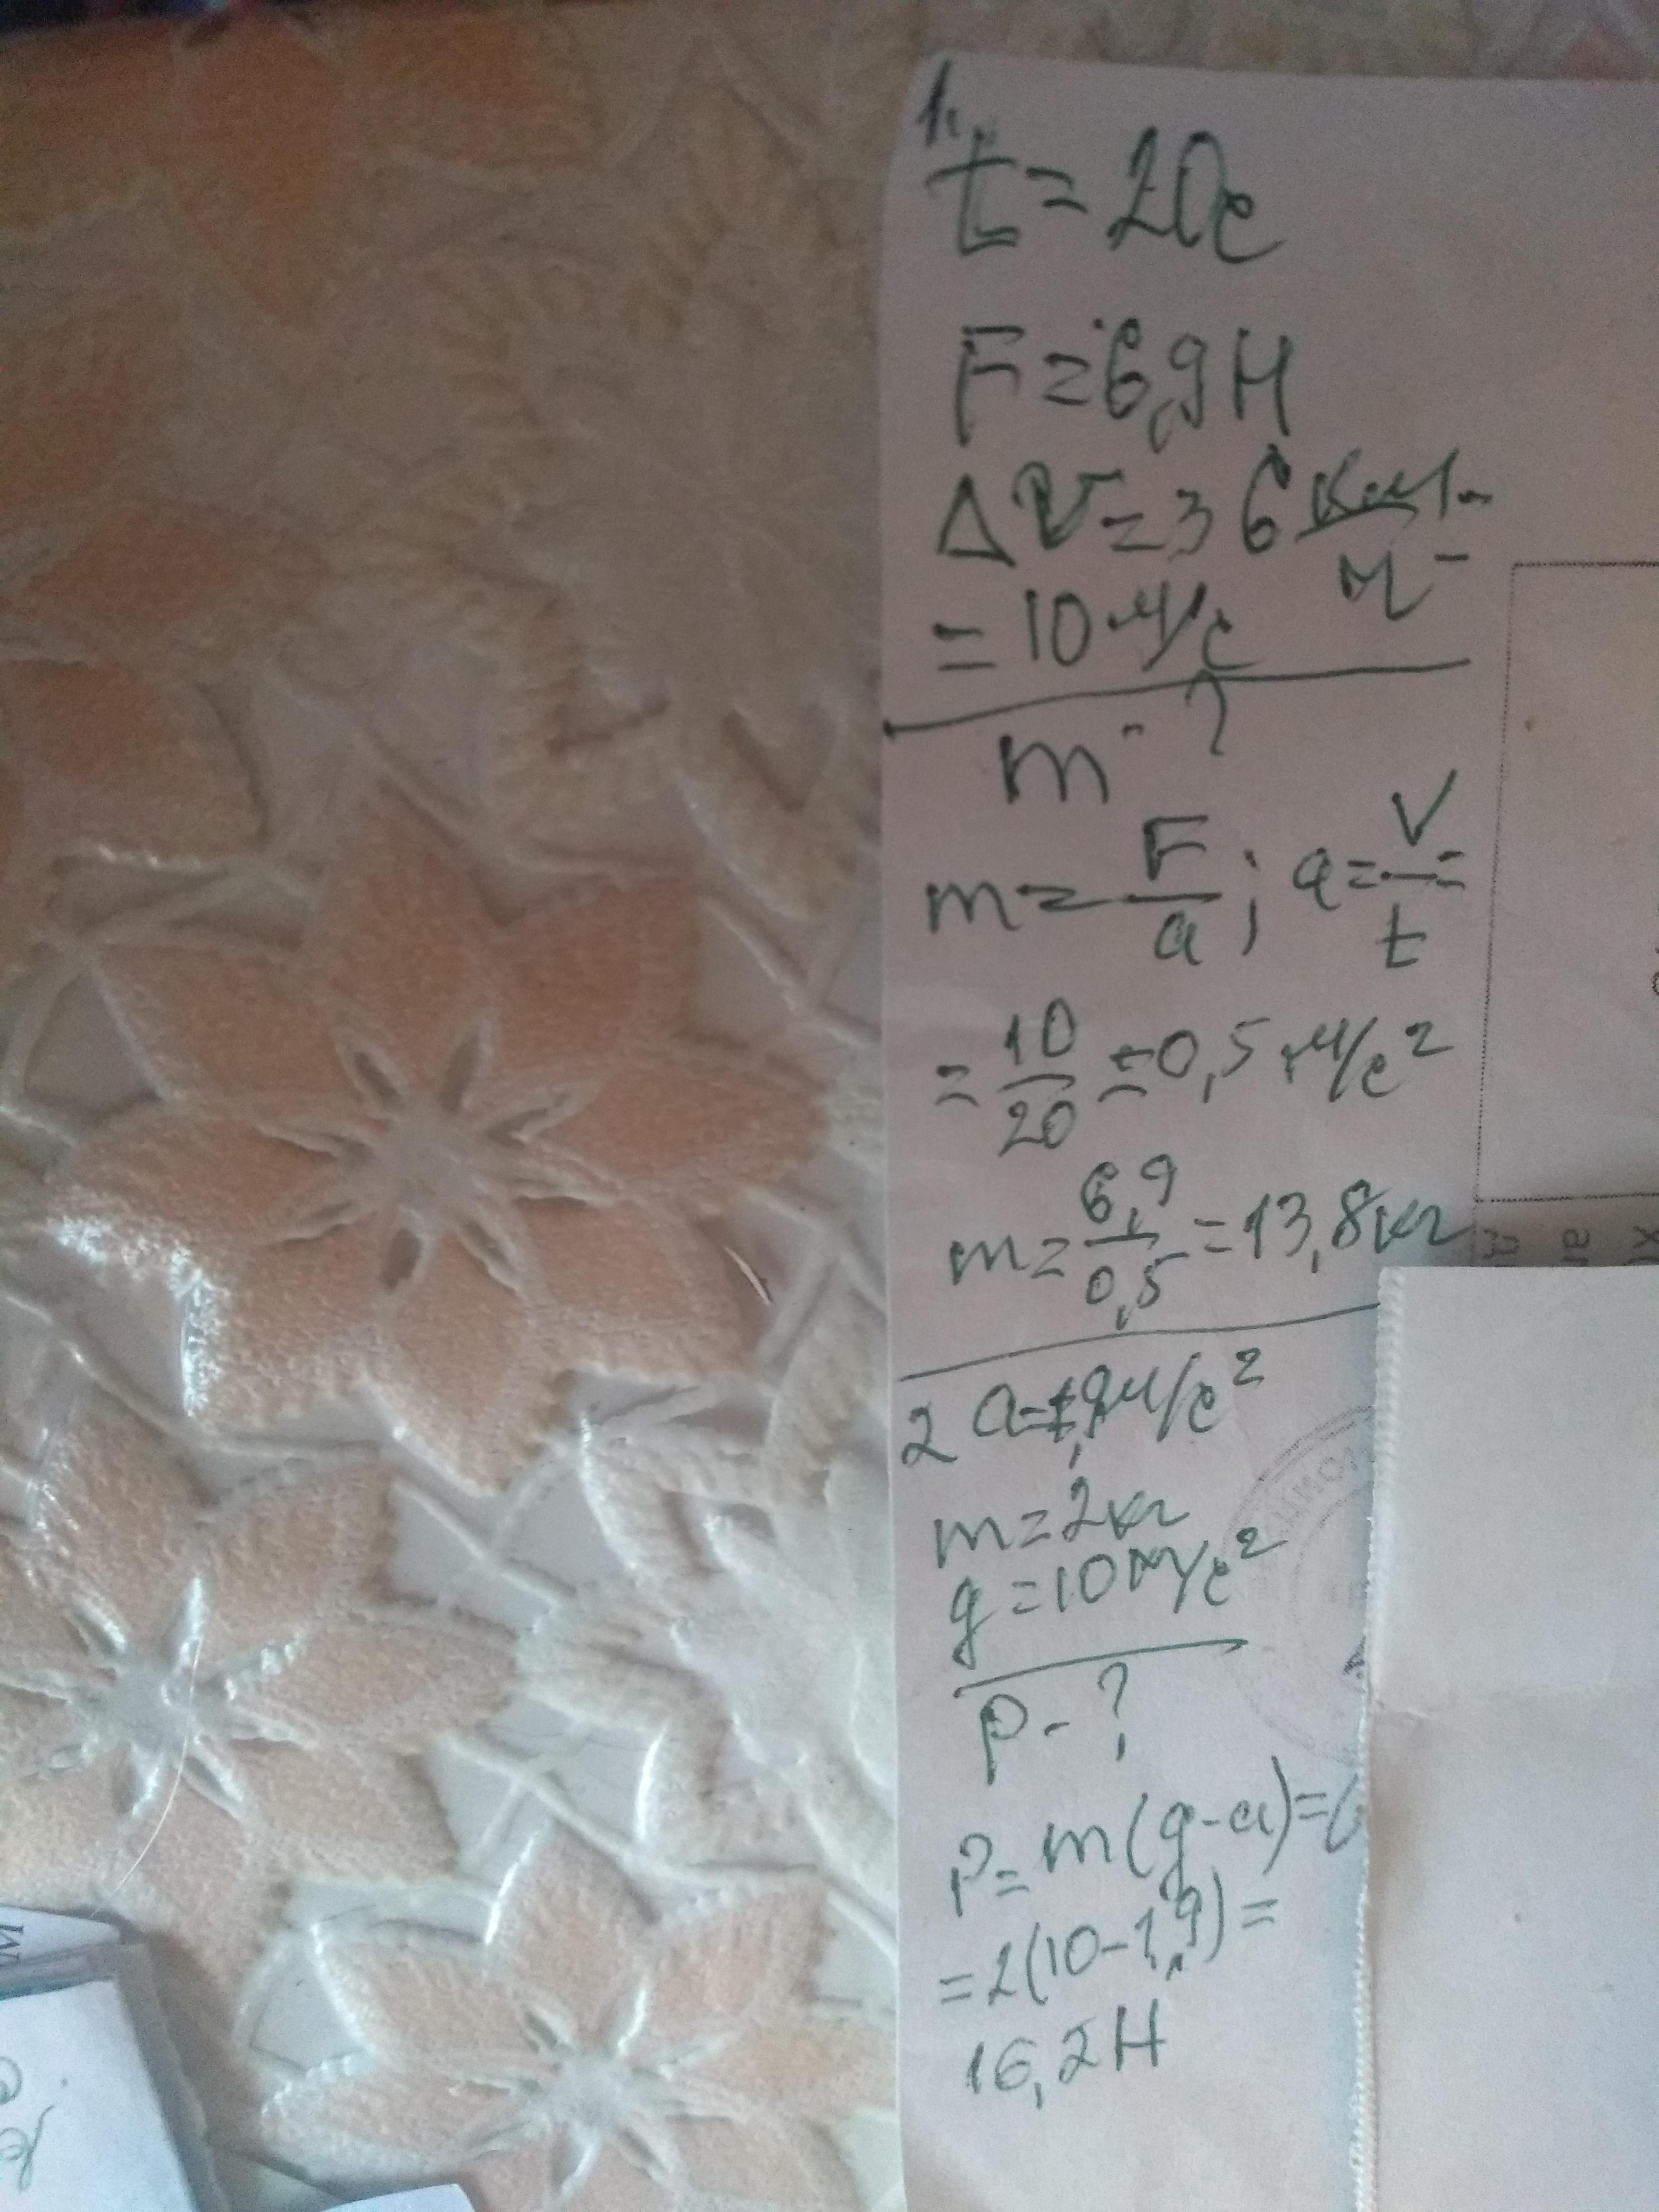 1.
t = 20c
F = 6,9 H
Δ V = 36 км/ч =
= 10 м/c
m - ?
m = F/a ; a = V/t =
= 10/20 = 0,5 м/c²
m = 6,9/0,5 = 13,8 кг
2 a = 1,9 м/c²
m = 2 кг
g = 10 м/c²
P - ?
P = m (g - a) =
= 2 (10 - 1,9) =
16,2 H